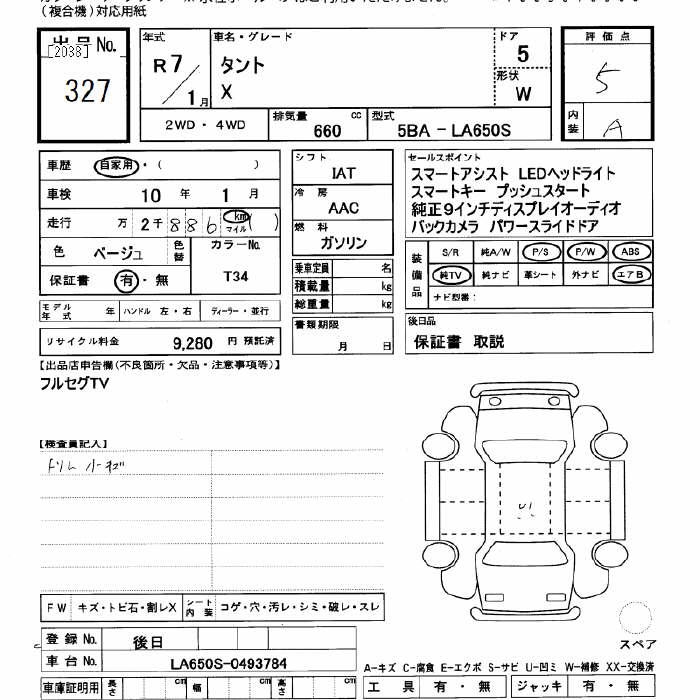 (複合機)対応用紙
出品 No.
[2038]
327
年式
R7/1月
車名・グレード
タント
X
ドア
5
形状
W
評価点
5
内装
A
2WD・4WD
排気量 cc
660
型式
5BA - LA650S
車歴 自家用・( )
車検 10年 1月
走行 万 2千 886 km マイル ( )
色 ベージュ 色替 カラーNo.
T34
保証書 有・無
モデル年式 年 ハンドル 左・右 ディーラー・並行
リサイクル料金 9,280 円 預託済
シフト
IAT
冷房
AAC
燃料
ガソリン
乗車定員 名
積載量 kg
総重量 kg
書類期限
月 日
セールスポイント
スマートアシスト LEDヘッドライト
スマートキー プッシュスタート
純正9インチディスプレイオーディオ
バックカメラ パワースライドドア
装備品 S/R 純A/W P/S P/W ABS
純TV 純ナビ 革シート 外ナビ エアB
ナビ型番:
後日品
保証書 取説
【出品店申告欄(不良箇所・欠品・注意事項等)】
フルセグTV
【検査員記入】
ドリム ハーキズ
U1
FW キズ・トビ石・割レX シート内装 コゲ・穴・汚レ・シミ・破レ・スレ
登録 No. 後日
車台 No. LA650S-0493784
車庫証明用 長さ cm 幅 cm 高さ cm
スペア
A-キズ C-腐食 E-エクボ S-サビ U-凹ミ W-補修 XX-交換済
工具 有・無 ジャッキ 有・無